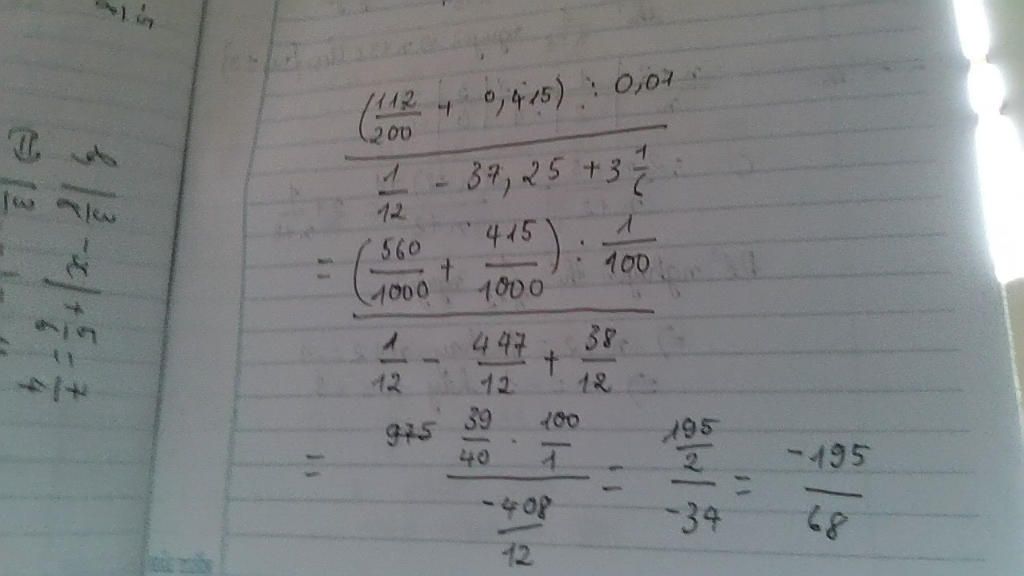 (112/200 + 0,415) : 0,01
1/12 - 37,25 + 3 1/6
= (560/1000 + 415/1000) : 1/100
1/12 - 447/12 + 38/12
= 975 39/40 . 100/1 = 195/2 = -195
-408/12 -34 68